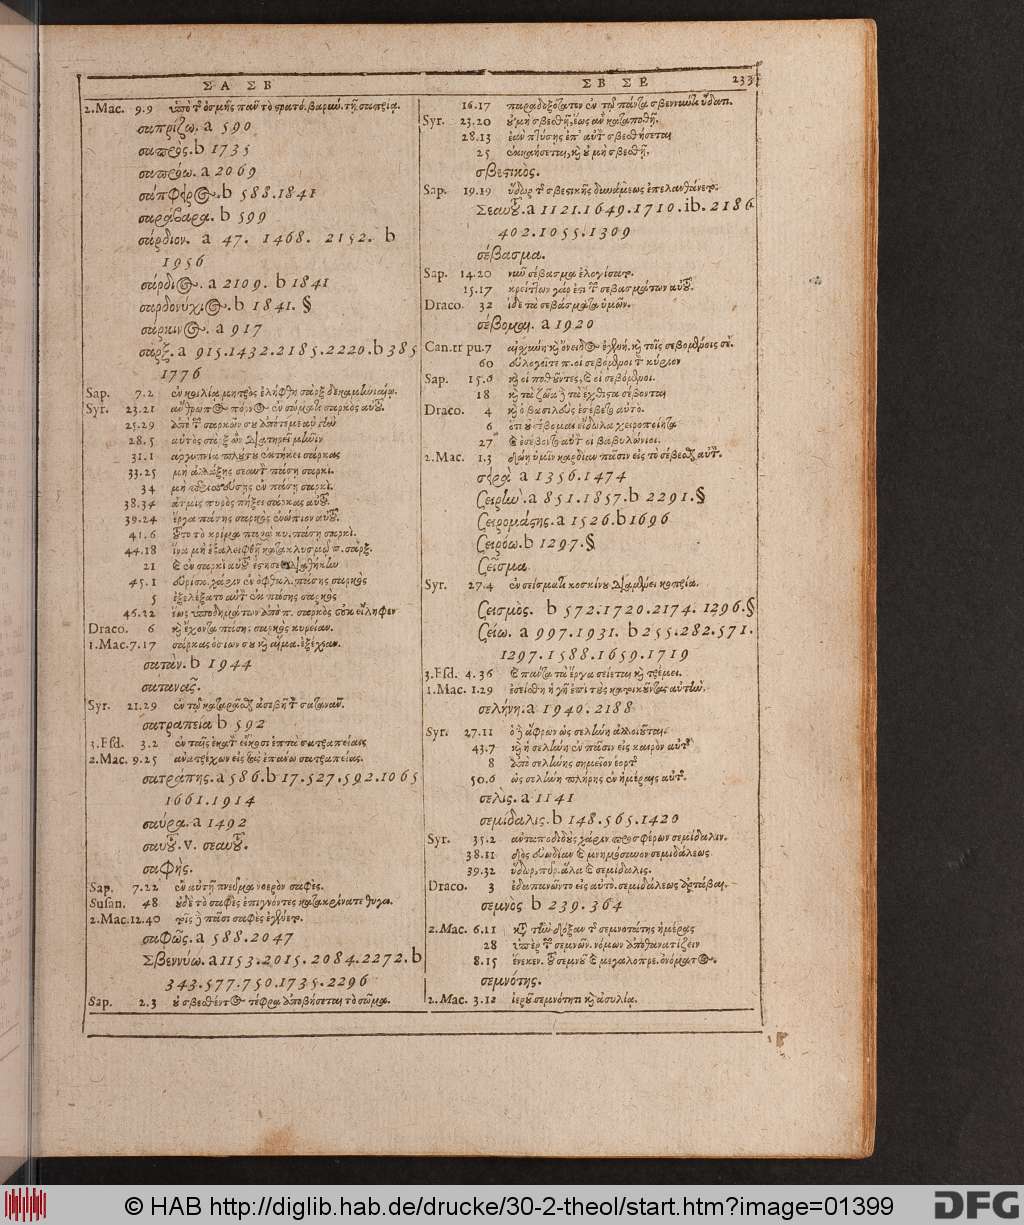 Σ Α Σ Β
Σ Β Σ Ε 233
2.Mac. 9.9 ὑπὸ τ͂ ὀσμῆς πᾶν τὸ στρατό. βαρυύ. τῇ σαπρίᾳ.
σαπρίζω. a 590
σαπρὸς. b 1735
σαπρόω. a 2069
σάπφειρος. b 588.1841
σαράβαρα. b 599
σάρδιον. a 47. 1468. 2152. b
1956
σάρδιος. a 2109. b 1841
σαρδονύχιος. b 1841. §
σάρκινος. a 917
σάρξ. a 915.1432.2185.2220. b 385
1776
Sap. 7.2 ἐν κοιλίᾳ μητρὸς ἐγλύφην σὰρξ δεκαμηνιαίῳ
Syr. 23.21 ἄνθρωπος πόρνος ἐν σώματι σαρκὸς αὐτοῦ.
25.29 ἀπὸ τ͂ σαρκῶν σου ἀπότεμε αὐτὴν
28.5 αὐτὸς σὰρξ ὢν διατηρεῖ μῆνιν
31.1 ἀγρυπνία πλούτου ἐκτήκει σάρκας
33.25 μὴ ἀλλάξῃς σεαυτ͂ πάσῃ σαρκὶ.
34 μὴ περισσεύσῃς ἐν πάσῃ σαρκὶ.
38.34 ἀτμὶς πυρὸς πήξει σάρκας αὐτοῦ.
39.24 ἔργα πάσης σαρκὸς ἐνώπιον αὐτοῦ.
41.6 τοῦτο τὸ κρίμα παρὰ κυ. πάσῃ σαρκὶ.
44.18 ἵνα μὴ ἐξαλειφθῇ κατακλυσμῷ π. σὰρξ.
21 καὶ ἐν σαρκὶ αὐτοῦ ἔστησε διαθήκην
45.1 εὑρίσκ. χάριν ἐν ὀφθαλ. πάσης σαρκὸς
5 ἐξελέξατο αὐτ͂ ἐκ πάσης σαρκὸς
46.22 ἕως ὑποδημάτων ἀπὸ π. σαρκὸς οὐκ εἴληφεν
Draco. 6 καὶ ἔχοντα πάσης σαρκὸς κυρείαν.
1.Mac. 7.17 σάρκας ὁσίων σου καὶ αἷμα. ἐξέχεαν.
σατὰν. b 1944
σατανᾶς.
Syr. 21.29 ἐν τῷ καταρᾶσθαι ἀσεβῆ τ͂ σατανᾶν.
σατραπεία b 592
3.Esd. 3.2 ἐν ταῖς ἑκατ͂ εἴκοσι ἑπτὰ σατραπείαις
2.Mac. 9.25 ἀνατρέχων εἰς τὰς ἐπάνω σατραπείας.
σατράπης. a 586. b 17.527.592.1065
1661.1914
σαύρα. a 1492
σαυτοῦ. v. σεαυτοῦ.
σαφής.
Sap. 7.22 ἐν αὐτῇ πνεῦμα νοερὸν σαφὲς.
Susan. 48 οὐδὲ τὸ σαφὲς ἐπιγνόντες κατακρίνατε θυγα.
2.Mac. 12.40 τοῖς δὲ πᾶσι σαφὲς ἐγένετο.
σαφῶς. a 588.2047
Σβεννύω. a 1153.2015.2084.2272. b
343.577.750.1735.2296
Sap. 2.3 οὗ σβεσθέντος τέφρα ἀποβήσεται τὸ σῶμα.
16.17 παραδοξότατον ἐν τῷ πάντα σβεννύντι ὕδατι.
Syr. 23.20 οὐ μὴ σβεσθῇ, ἕως ἂν καταποθῇ.
28.13 ἐὰν πτύσῃς ἐπ' αὐτ͂ σβεσθήσεται
25 ἐκκαήσεται, καὶ οὐ μὴ σβεσθῇ.
σβεστικὸς.
Sap. 19.19 ὕδωρ τ͂ σβεστικῆς δυνάμεως ἐπελανθάνετο.
Σεαυτοῦ. a 1121.1649.1710. ib. 2186
402.1055.1309
σέβασμα.
Sap. 14.20 νῦν σέβασμα ἐλογίσατο.
15.17 κρείττων γάρ ἐστι τ͂ σεβασμάτων αὐτοῦ.
Draco. 32 ἴδε τὰ σεβάσματα ὑμῶν.
σέβομαι. a 1920
Can. tr pu. 7 αἰσχύνη καὶ ὄνειδος ἐγενή. καὶ τοῖς σεβομένοις σε.
60 εὐλογεῖτε π. οἱ σεβόμενοι τ͂ κύριον
Sap. 15.6 καὶ οἱ ποθοῦντες, καὶ οἱ σεβόμενοι.
18 καὶ τὰ ζῶα δὲ τὰ ἔχθιστα σέβονται
Draco. 4 καὶ ὁ βασιλεὺς ἐσέβετο αὐτὸ.
6 ὅτι οὐ σέβομαι εἴδωλα χειροποίητα
27 καὶ ἐσέβοντο αὐτ͂ οἱ βαβυλώνιοι.
2.Mac. 1.3 δῴη ὑμῖν καρδίαν πᾶσιν εἰς τὸ σέβεσθαι αὐτ͂.
σειρὰ a 1356.1474
Σειρὴν. a 851.1857. b 2291. §
Σειρομάστης. a 1526. b 1696
Σειρόω. b 1297. §
Σεῖσμα
Syr. 27.4 ἐν σείσματι κοσκίνου διαμένει κοπρία.
Σεισμὸς. b 572.1720.2174. 1296. §
Σείω. a 997.1931. b 255.282.571.
1297.1588.1659.1719
3.Esd. 4.36 καὶ πάντα τὰ ἔργα σείεται καὶ τρέμει.
1.Mac. 1.29 ἐσείσθη ἡ γῆ ἐπὶ τοὺς κατοικοῦντας αὐτὴν.
σελήνη. a 1940.2188
Syr. 27.11 ὁ δὲ ἄφρων ὡς σελήνη ἀλλοιοῦται.
43.7 καὶ ἡ σελήνη ἐν πᾶσιν εἰς καιρὸν αὐτ͂
8 ἀπὸ σελήνης σημεῖον ἑορτ͂
50.6 ὡς σελήνη πλήρης ἐν ἡμέραις αὐτ͂.
σελὶς. a 1141
σεμίδαλις. b 148.565.1420
Syr. 35.2 ἀνταποδιδοὺς χάριν προσφέρων σεμίδαλιν.
38.11 δὸς εὐωδίαν καὶ μνημόσυνον σεμιδάλεως
39.32 ὕδωρ, πῦρ. ἅλα καὶ σεμίδαλις.
Draco. 3 ἐδαπανῶντο εἰς αὐτὸ. σεμιδάλεως ἀρτάβαι.
σεμνὸς b 239.364
2.Mac. 6.11 καὶ τὴν δόξαν τ͂ σεμνοτάτης ἡμέρας
28 ὑπὲρ τ͂ σεμνῶν. νόμων ἀποθανατίζειν
8.15 ἕνεκεν. τοῦ σεμνοῦ καὶ μεγαλοπρε. ὀνόματος.
σεμνότης.
2.Mac. 3.12 ἱεροῦ σεμνότητι καὶ ἀσυλίᾳ.
© HAB http://diglib.hab.de/drucke/30-2-theol/start.htm?image=01399
DFG